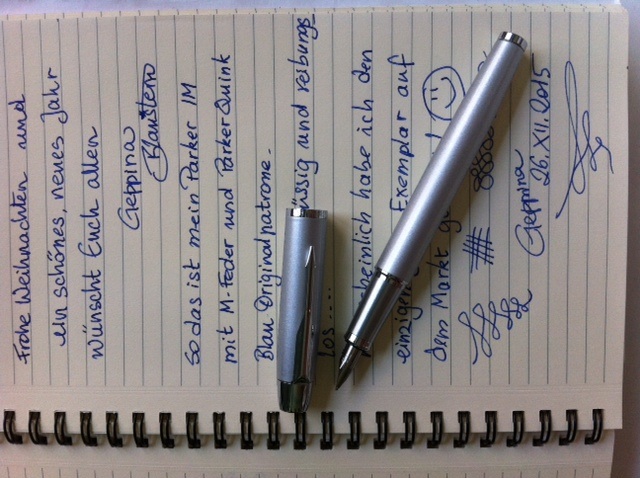 Frohe Weihnachten und
ein schönes, neues Jahr
wünscht Euch allen
Geppina
Blaustern
So das ist mein Parker IM
mit M-Feder und Parker Quink
Blau Originalpatrone.
üssig und reibungs
los....
scheinlich habe ich den
einzige Exemplar auf
dem Markt g
Geppina
26. XII. 2015